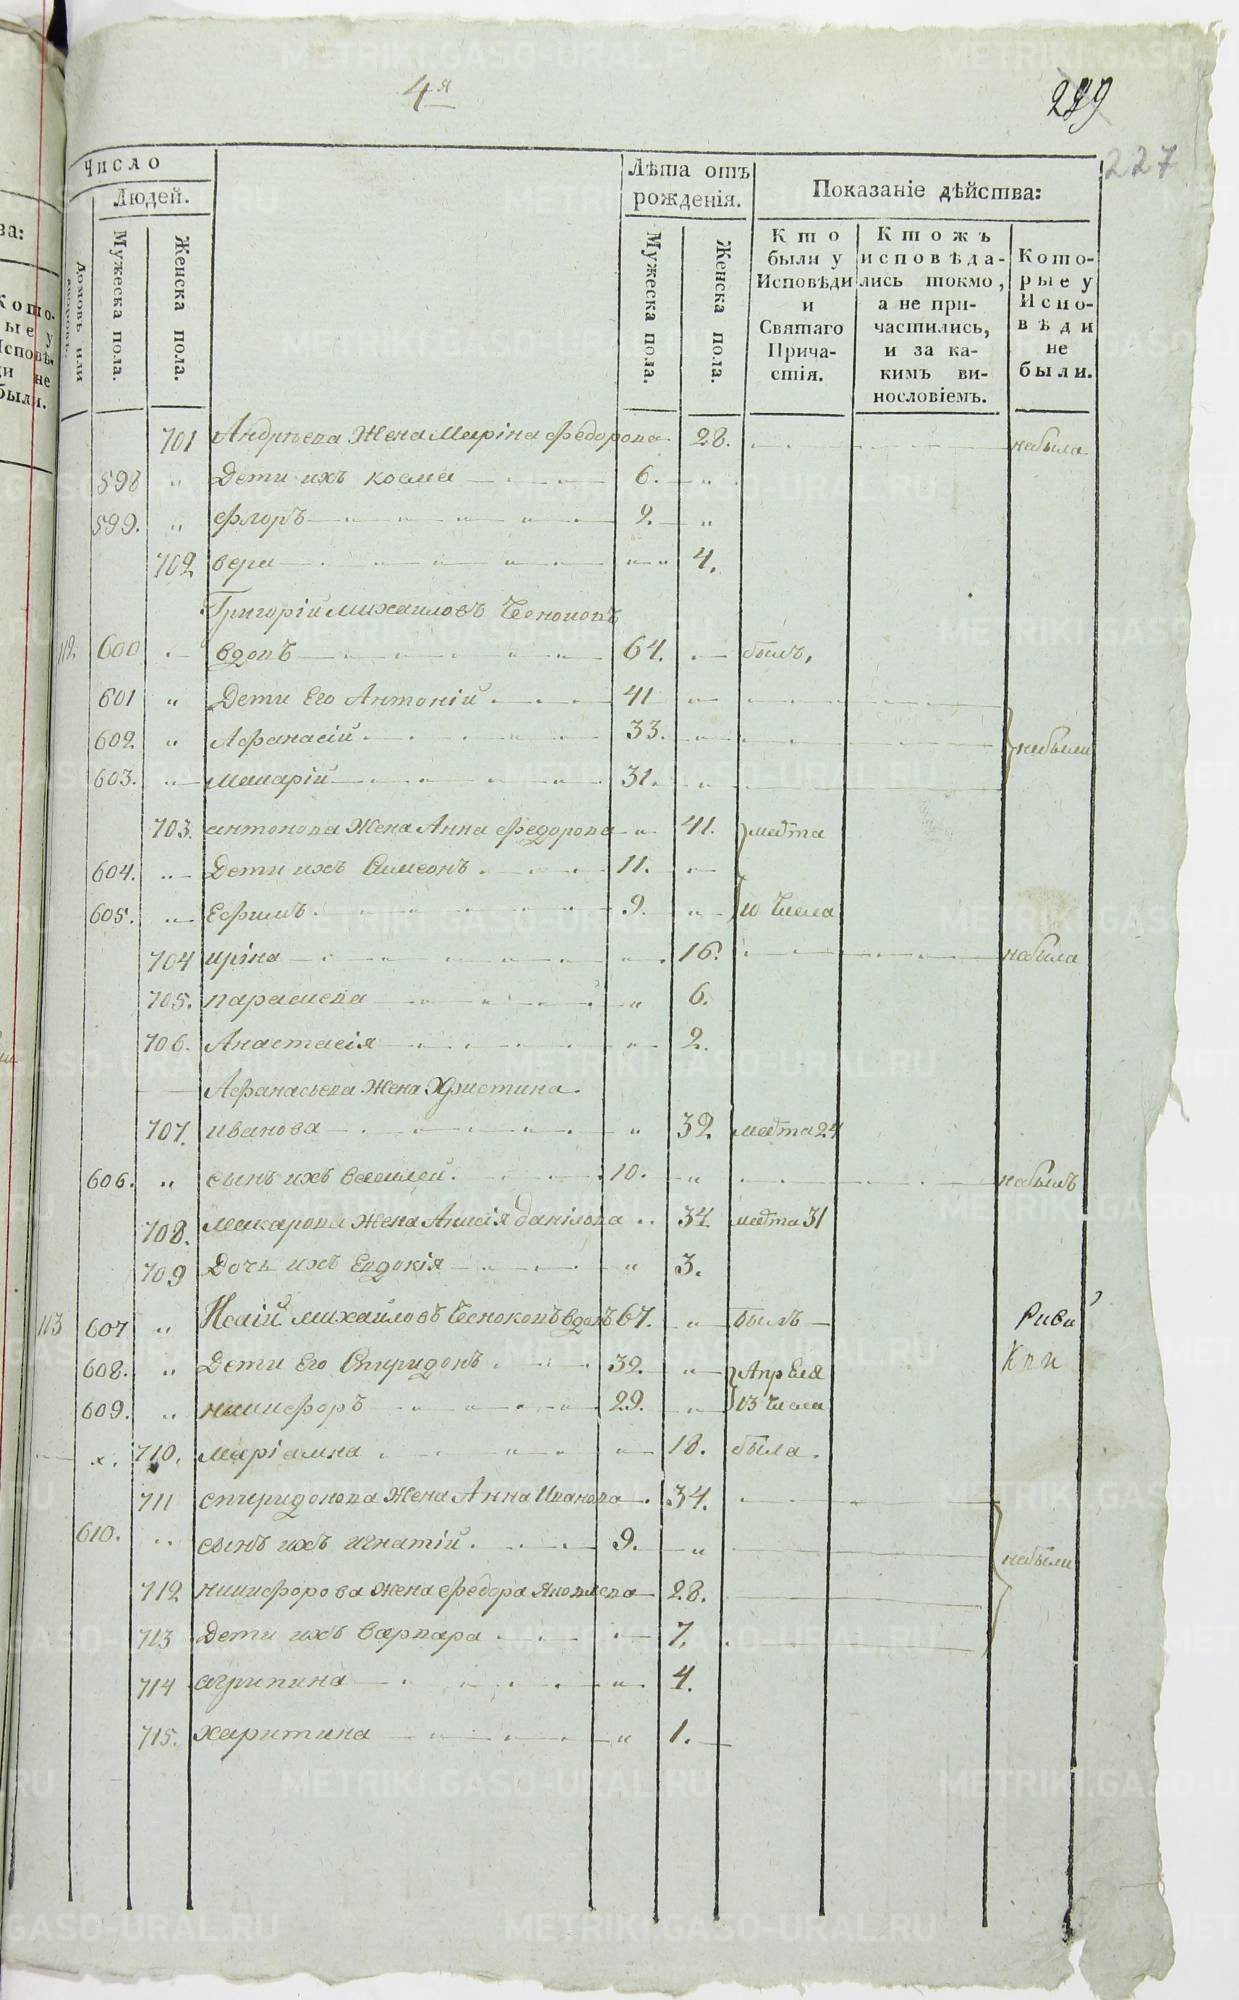 4я
289
227
Число
Людей.
Домовъ или
Мужеска пола.
Женска пола.
Лѣта отъ рожденія.
Мужеска пола.
Женска пола.
Показаніе дѣйства:
Кто были у Исповѣди и Святаго Прича-стія.
Ктожъ исповѣда-лись токмо, а не при-частились, и за ка-кимъ ви-нословіемъ.
Кото-рые у Испо-вѣди не были.
701 Андрѣева Жена Марiна Федорова 28. небыла
598 " Дети ихъ косма 6. "
599. " Флоръ 2. "
702 вера " 4.
Григорiй михаиловъ Чесноковъ
112 600 вдовъ 64. былъ,
601 " Дети Его Антонiй 41
602 " Афанасiй 33. небыли
603. " макарiй 31.
703. антонова Жена Анна Федорова " 41. марта
604. " Дети ихъ Симеонъ 11.
605. " Ефимъ 9. " 10 Числа
704 ирiна 16. небыла
705. параскева " 6.
706. Анастасiя " 2.
Афанасьева Жена Христина
707. иванова " 32 марта 24
606. " сынъ ихъ василей 10. " небылъ
708. макарова Жена Анисiя данiлова 34 марта 31
709 Дочь ихъ Евдокiя " 3.
113 607 " Исаiй михайловъ Чесноковъ вдовъ 67. " былъ
608. " Дети Его Спиридонъ 32. " Апреля
609. " никифоръ 29. " 13 Числа
x. 710. марiамна " 18. была
711 спиридонова Жена Анна Иванова 34.
610. " сынъ ихъ игнатiй 9. " небыли
712 никифорова жена Федора Яковлева 28.
713 Дети ихъ варвара 7.
714 агрипина " 4.
715. харитина " 1.
METRIKI.GASO-URAL.RU